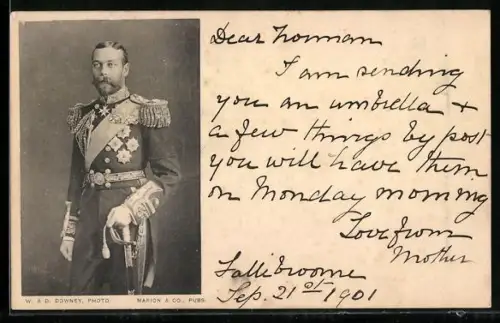 Dear Norman
I am sending
you an umbrella +
a few things by post
you will have them
on Monday morning
Love from
Mother
Fallibroome
Sep. 21st 1901
W. & D. DOWNEY, PHOTO. MARION & CO., PUBS.